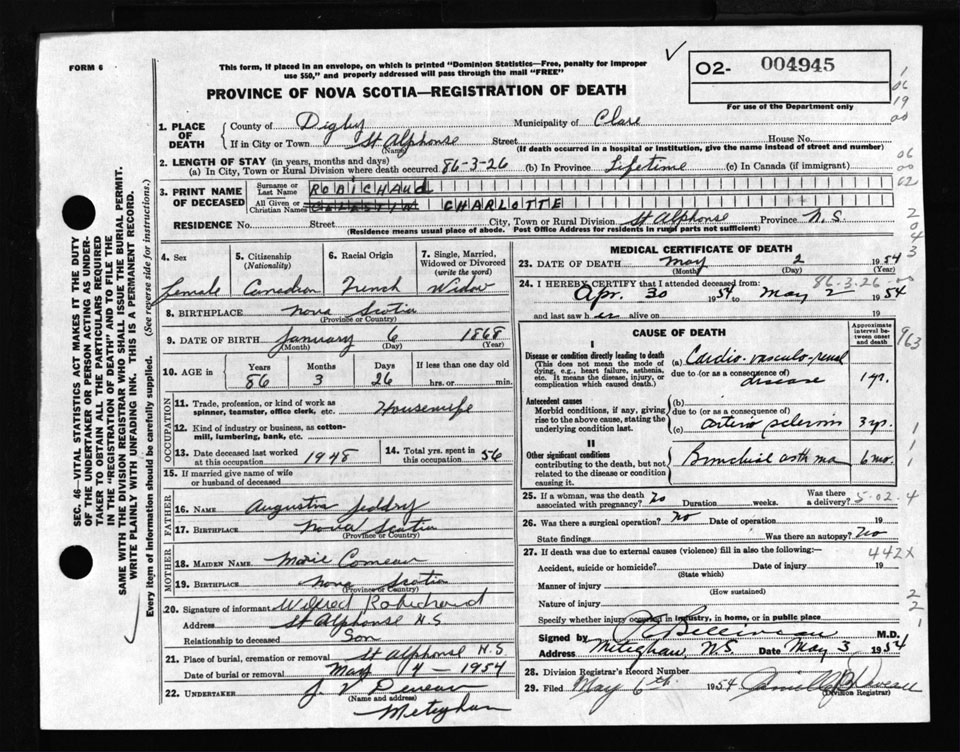 FORM 6
This form, if placed in an envelope, on which is printed "Dominion Statistics—Free, penalty for improper
use $50," and properly addressed will pass through the mail "FREE"
PROVINCE OF NOVA SCOTIA—REGISTRATION OF DEATH
O2- 004945
For use of the Department only
1. PLACE OF DEATH { County of Digby Municipality of Clare
If in City or Town St Alphonse Street House No.
(Name) (If death occurred in a hospital or institution, give the name instead of street and number)
2. LENGTH OF STAY (in years, months and days)
(a) In City, Town or Rural Division where death occurred 86-3-26 (b) In Province Lifetime (c) In Canada (if immigrant)
3. PRINT NAME OF DECEASED { Surname or Last Name ROBICHAUD
All Given or Christian Names CHARLOTTE
RESIDENCE No. Street City, Town or Rural Division St Alphonse Province N.S.
(Residence means usual place of abode. Post Office Address for residents in rural parts not sufficient)
4. Sex
Female
5. Citizenship
(Nationality)
Canadian
6. Racial Origin
French
7. Single, Married,
Widowed or Divorced
(write the word)
Widow
8. BIRTHPLACE Nova Scotia
(Province or Country)
9. DATE OF BIRTH January 6 1868
(Month) (Day) (Year)
10. AGE in { Years Months Days If less than one day old
86 3 26 hrs. or min.
OCCUPATION
11. Trade, profession, or kind of work as
spinner, teamster, office clerk, etc. Housewife
12. Kind of industry or business, as cotton-
mill, lumbering, bank, etc.
13. Date deceased last worked
at this occupation 1948
14. Total yrs. spent in
this occupation 56
15. If married give name of wife
or husband of deceased
FATHER
16. NAME Augustin
17. BIRTHPLACE Nova Scotia
(Province or Country)
MOTHER
18. MAIDEN NAME Marie Comeau
19. BIRTHPLACE Nova Scotia
(Province or Country)
20. Signature of informant Wilfred Robichaud
Address St Alphonse N.S
Relationship to deceased Son
21. Place of burial, cremation or removal St Alphonse N.S.
Date of burial or removal May 4 - 1954
22. UNDERTAKER J V Deveau
(Name and address)
Meteghan
MEDICAL CERTIFICATE OF DEATH
23. DATE OF DEATH May 2 1954
(Month) (Day) (Year)
86-3-26
24. I HEREBY CERTIFY that I attended deceased from:
Apr. 30 1954 to May 2 1954
and last saw her alive on 19
CAUSE OF DEATH
Approximate interval between onset and death
I
Disease or condition directly leading to death
(This does not mean the mode of dying, e.g., heart failure, asthenia, etc. It means the disease, injury, or complication which caused death.)
(a) Cardio-vasculo-renal
due to (or as a consequence of)
disease 1 yr.
Antecedent causes
Morbid conditions, if any, giving rise to the above cause, stating the underlying condition last.
(b)
due to (or as a consequence of)
(c) arterio sclerosis 3 yrs.
II
Other significant conditions
contributing to the death, but not related to the disease or condition causing it.
Bronchial asthma 6 mo.
963
25. If a woman, was the death
associated with pregnancy? no Duration weeks. Was there a delivery?
5-02.4
26. Was there a surgical operation? no Date of operation 19
State findings Was there an autopsy? no
27. If death was due to external causes (violence) fill in also the following:—
442X
Accident, suicide or homicide? Date of injury 19
(State which)
Manner of injury
(How sustained)
Nature of injury
Specify whether injury occurred in industry, in home, or in public place
Signed by Belliveau M.D.
Address Meteghan, N.S. Date May 3, 1954
28. Division Registrar's Record Number
29. Filed May 6th 1954
(Division Registrar)
SEC. 46—VITAL STATISTICS ACT MAKES IT THE DUTY
OF THE UNDERTAKER OR PERSON ACTING AS UNDER-
TAKER TO OBTAIN ALL THE PARTICULARS REQUIRED
IN THE "REGISTRATION OF DEATH" AND TO FILE THE
SAME WITH THE DIVISION REGISTRAR WHO SHALL ISSUE THE BURIAL PERMIT.
WRITE PLAINLY WITH UNFADING INK. THIS IS A PERMANENT RECORD.
Every item of information should be carefully supplied. (See reverse side for instructions.)